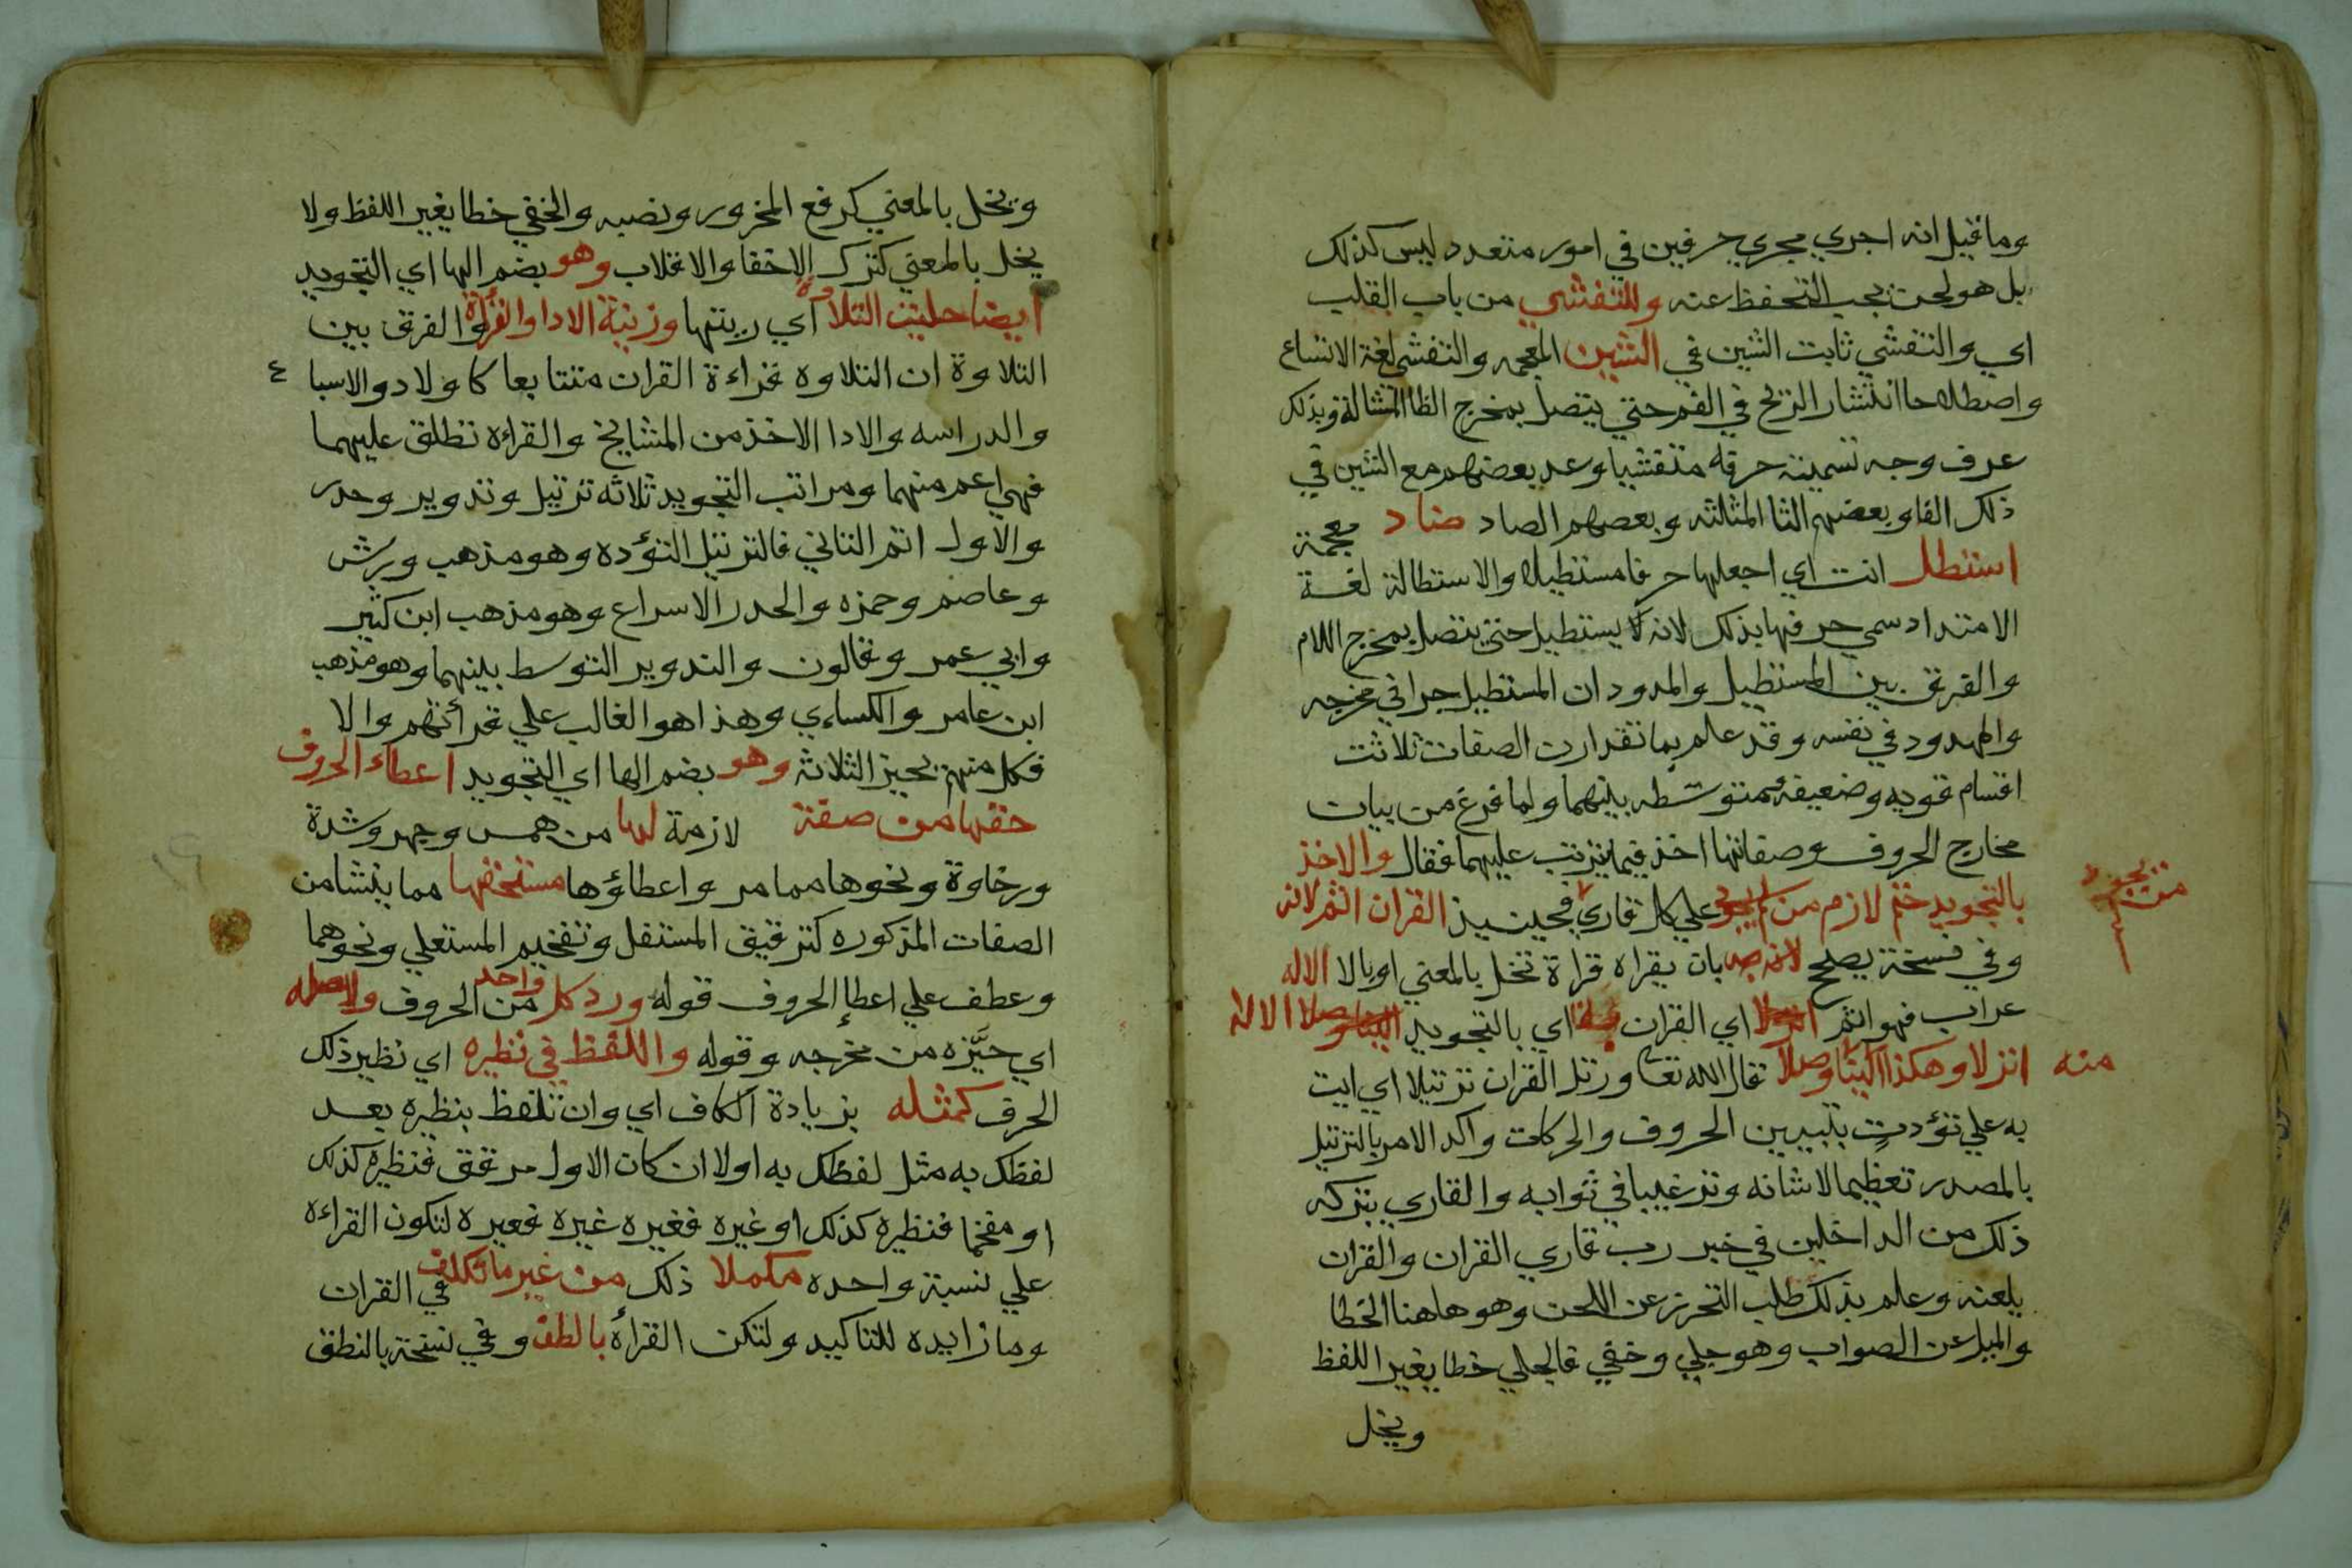 وما قيل انه اجري مجري حرفين في امور متعدد ليس كذلك
بل هو لحن يجب التحفظ عنه وللتفشي من باب القلب
اي والتفشي ثابت الشين في الشين المعجمه والتفشي لغة الاتساع
واصطلاحا انتشار الريح في الفم حتي يتصل بمخرج الظا المشالة وبذلك
عرف وجه تسميته حرفه متفشيا وعد بعضهم مع الشين في
ذلك الفا وبعضهم الثا المثلثه وبعضهم الصاد ضاد معجمة
استطل انت اي اجعلها حرفا مستطيلا والاستطالة لغة
الامتداد سمي حرفها بذلك لانه يستطيل حتي يتصل بمخرج اللام
والفرق بين المستطيل والمدود ان المستطيل جرا في مخرجه
والممدود في نفسه وقد علم بما تقدا رن الصفات ثلاثت
اقسام قويه وضعيفة متوسطه بينهما ولما فرغ من بيان
مخارج الحروف وصفاتها اخذ فيما يترتب عليهما فقال والاخذ
بالتجويد حتم لازم من لم يجود علي كل قاري فحينيذ القران اثم لانه
من يجود
وفي نسخة يصلح لانه به بان يقراه قراة تخل بالمعني او بالا الاله
عراب فهو اثم انزلا اي القران اي بالتجويد الينا وصلا الاله
منه انزلا وهكذا الينا وصلا قال الله تعا ورتل القران ترتيلا اي ايت
به علي تؤدت بتبيين الحروف والحركات واكد الامر بالترتيل
بالمصدر تعظيما لاشانه وترغيبا في ثوابه والقاري بتركه
ذلك من الداخلين في خبر رب قاري القران والقران
يلعنه وعلم بذلك طلب التحرز عن اللحن وهو هاهنا الخطا
والميل عن الصواب وهو جلي وخفي فالجلي خطا يغير اللفظ
ويخل
ويخل بالمعني كرفع المخرور ونصبه والخفي خطا يغير اللفظ ولا
يخل بالمعني كترك الاخفا والاقلاب وهو بضم الها اي التجويد
ايضا حليت التلاوة اي زينتها وزينة الادا والقراة والفرق بين
التلاوة ان التلاوه قراءة القران متتابعا كاولاد والاسباع
والدراسه والادا الاخذ من المشايخ والقراءه تطلق عليهما
فهي اعم منهما ومراتب التجويد ثلاثه ترتيل وتدوير وحدر
والاول اتم الثاني فالترتيل التؤده وهو مذهب ورش
وعاصم وحمزه والحدر الاسراع وهو مذهب ابن كثير
وابي عمر وقالون والتدوير التوسط بينهما وهو مذهب
ابن عامر والكساءي وهذا هو الغالب علي قرأتهم والا
فكل منهم يجيز الثلاثه وهو بضم الها اي التجويد اعطاء الحروف
حقها من صفة لازمة لها من همس وجهر وشدة
ورخاوة ونحوها ممامر واعطاؤها مستحقها مما ينشا من
الصفات المذكوره كترقيق المستفل وتفخيم المستعلي ونحوهما
وعطف علي اعطا الحروف قوله ورد كل واحد من الحروف ولاصله
اي حيَّزه من مخرجه وقوله واللفظ في نظيره اي نظير ذلك
الحرف كمثله بزيادة الكاف اي وان تلفظ بنظيره بعد
لفظك به مثل لفظك به اولا ان كان الاول مرقق فنظيره كذلك
او مفخما فنظيره كذلك او غيره فغيره غيره فغيره لتكون القراءه
علي نسبة واحده مكملا ذلك من غير ما تكلف في القران
وما زايده للتاكيد ولتكن القرأه بالطف وفي نسخة بالنطق